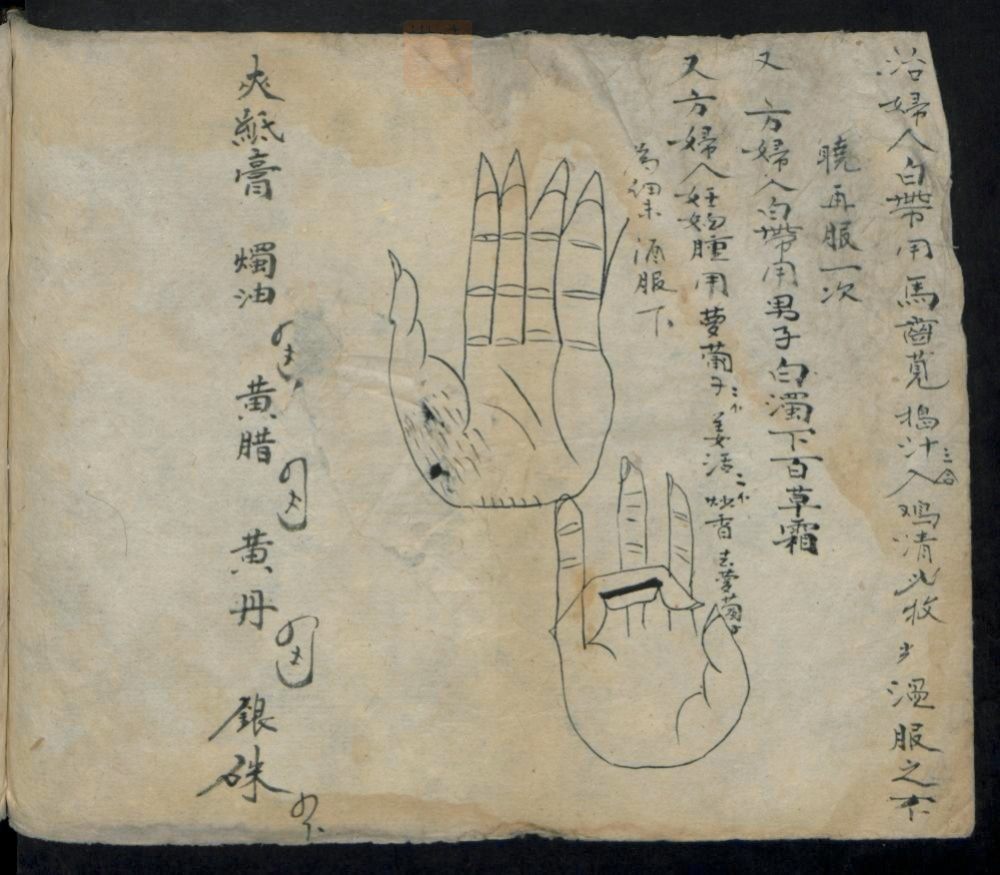 治婦人白帶用馬齒莧搗汁三合入鸡清二枚少溫服之不
曉再服一次
又方婦人白帶用男子白濁下百草霜
又方婦人妊娠腫用蔓蔔子二个姜活二个炒香去蔓蔔子
為細末酒服下
夾紙膏 燭油 黄腊 黄丹 銀硃